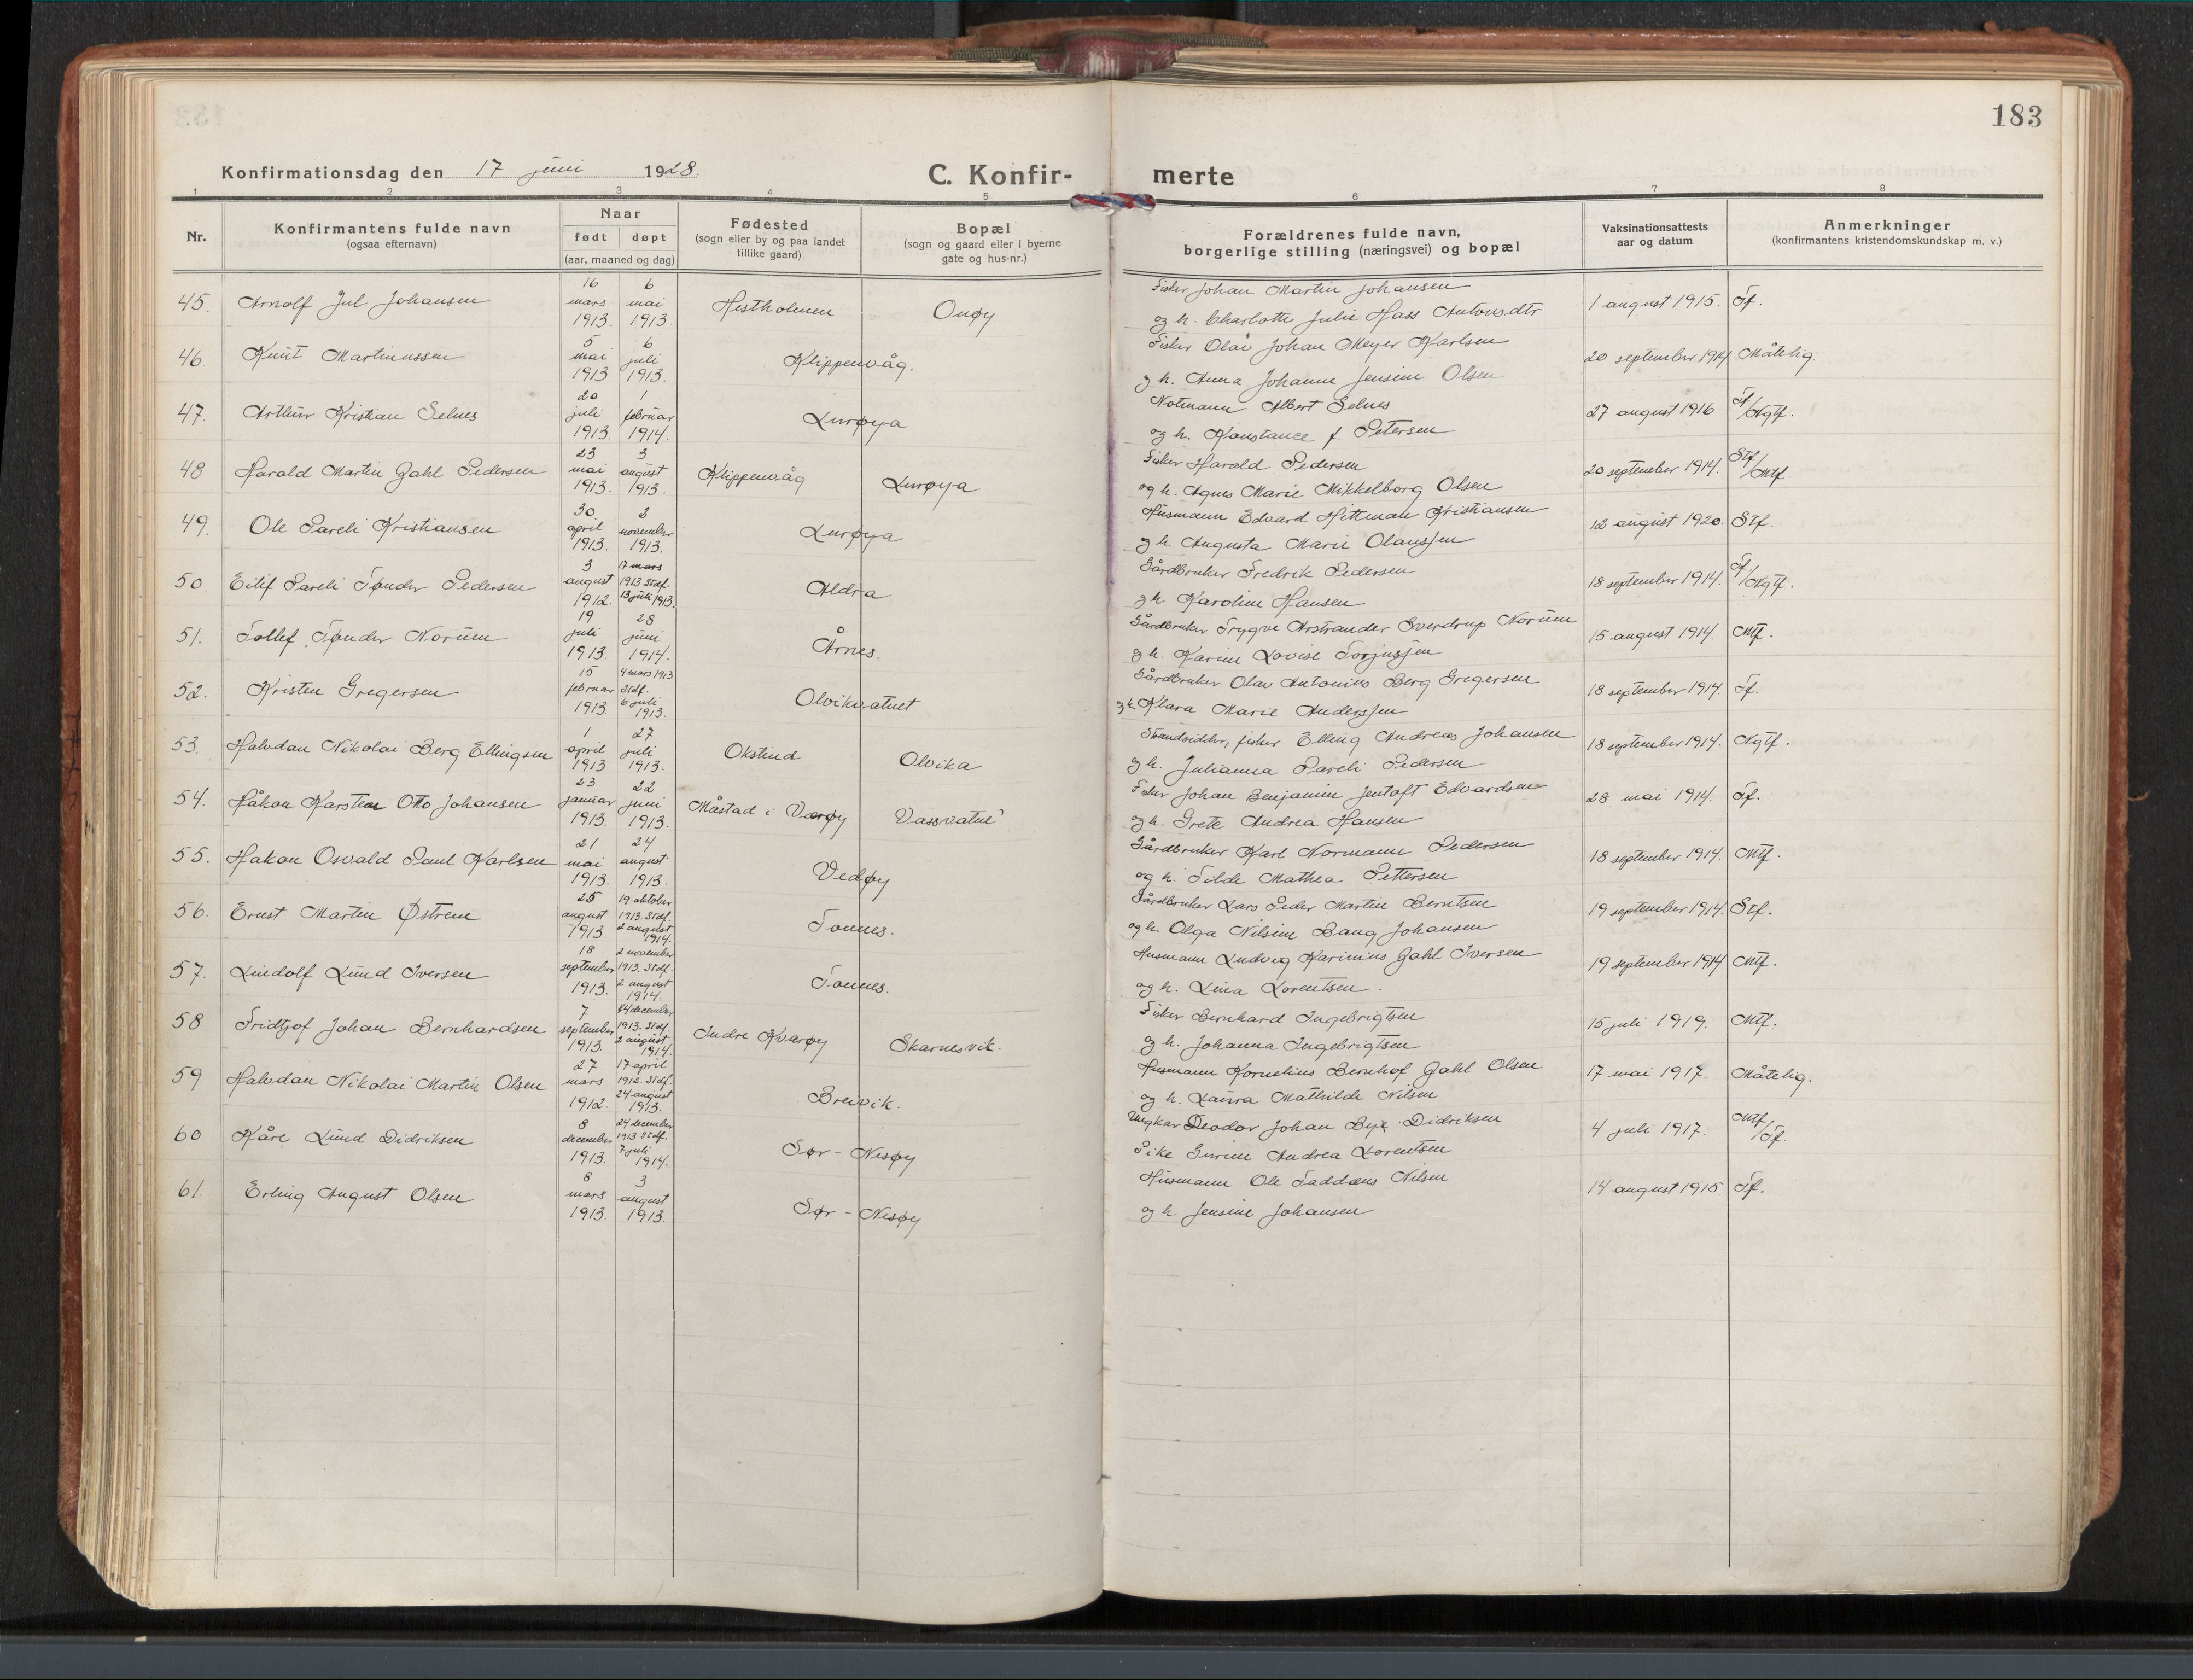 183
Konfirmationsdag den 17 juni 1928.
C. Konfir- merte
1 2 3 4 5 6 7 8
Nr.
Konfirmantens fulde navn
(ogsaa efternavn)
Naar
født døpt
(aar, maaned og dag)
Fødested
(sogn eller by og paa landet
tillike gaard)
Bopæl
(sogn og gaard eller i byerne
gate og hus-nr.)
Forældrenes fulde navn,
borgerlige stilling (næringsvei) og bopæl
Vaksinationsattests
aar og datum
Anmerkninger
(konfirmantens kristendomskundskap m. v.)
45. Arnolf Jul Johansen 16 mars 1913. 6 mai 1913. Hestholmen Onøy Fisker Johan Martin Johansen
og h. Charlotte Julie Hass Antonsdtr 1 august 1915. Tf.
46. Knut Martinussen 5 mai 1913 6 juli 1913. Klippenvåg. Fisker Olai Johan Meyer Karlsen
og h. Anna Johanne Jensine Olsen 20 september 1914. Måtelig.
47. Arthur Kristian Selnes 20 juli 1913. 1 februar 1914. Lurøya Notmann Albert Selnes
og h. Konstance f. Petersen 27 august 1916 Tf/Ngtf.
48 Harald Martin Gahl Pedersen 23 mai 1913. 3 august 1913. Klippenvåg Lurøya Fisker Harald Pedersen
og h. Agnes Marie Mikkelborg Olsen 20 september 1914. Stf/Mtf.
49. Ole Pareli Kristiansen 30. april 1913. 2 november 1913. Lurøya Husmann Edvard Hittman Kristiansen
og h. Augusta Marie Olaussen 12 august 1920. Stf.
50. Eilif Pareli Tønder Pedersen 3 august 1912. 17 mars 1913 Stdf. 13 juli 1913. Aldra Gårdbruker Fredrik Pedersen
og h. Karoline Hansen 18 september 1914. Tf/Ngtf.
51. Tollef Tønder Norum 19 juli 1913. 28 juni 1914. Årnes. Gårdbruker Trygve Arstrander Sverdrup Norum
og h. Karine Lovise Torjussen 15 august 1914. Mtf.
52. Kristen Gregersen 15 februar 1913. 4 mars 1913 Stdf. 6 juli 1913. Olvikvatnet Gårdbruker Olav Antonius Berg Gregersen
og h. Klara Marie Anderssen 18 september 1914. Tf.
53. Halvdan Nikolai Berg Ellingsen 1 april 1913 27 juli 1913. Okstind Olvika Strandsidder, fisker Elling Andreas Johansen
og h. Julianna Pareli Pedersen 18 september 1914. Ngtf.
54. Håkon Karsten Otto Johansen 23 januar 1913. 22 juni 1913. Måstad i Værøy Vassvatne Fisker Johan Benjamin Jentoft Edvardsen
og h. Grete Andrea Hansen 28 mai 1914. Tf.
55. Hakon Osvald Paul Karlsen 21 mai 1913. 24 august 1913. Vedøy Gårdbruker Karl Normann Pedersen
og h. Tilde Mathea Pettersen 18 september 1914. Mtf.
56. Ernst Martin Østrem 25 august 1913. 19 oktober 1913. Stdf. 2 august 1914. Tonnes. Gårdbruker Lars Peder Martin Berntsen
og h. Olga Nilsine Bang Johansen 19 september 1914. Stf.
57. Lindolf Lund Iversen 18 september 1913. 2 november 1913. Stdf. 2 august 1914. Tonnes. Husmann Ludvig Karinius Gahl Iversen
og h. Lina Lorentsen. 19 september 1914 Mtf.
58 Fridtjof Johan Bernhardsen 7 september 1913. 14 december 1913. Stdf. 2 august 1914. Indre Kvarøy Skarnesvik. Fisker Bernhard Ingebrigtsen
og h. Johanna Ingebrigtsen 15 juli 1919. Mtf.
59 Halvdan Nikolai Martin Olsen 27 mars 1912. 17 april 1912. Stdf. 24 august 1913. Breivik. Husmann Kornelius Bernhof Gahl Olsen
og h. Laura Mathilde Nilsen 17 mai 1917. Måtelig.
60 Kåre Lund Didriksen 8 december 1913. 24 december 1913 Stdf. 7 juli 1914. Sør-Nesøy Ungkar Deodor Johan Bye Didriksen
Pike Gurine Andrea Lorentsen 4 juli 1917. Mtf/Tf.
61. Erling August Olsen 8 mars 1913. 3 august 1913. Sør-Nesøy Husmann Ole Taddæus Nilsen
og h. Jensine Johansen 14 august 1915. Tf.